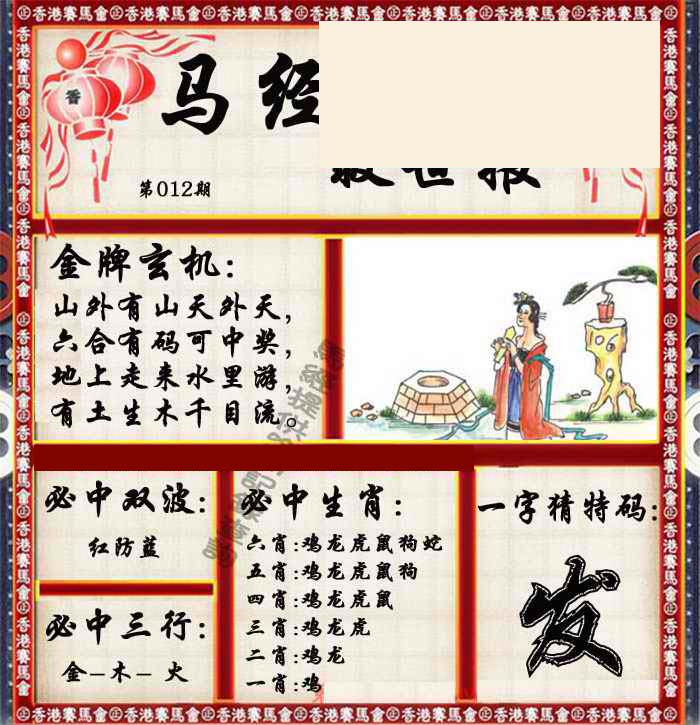 香
马经
救世报
第012期
金牌玄机:
山外有山天外天,
六合有码可中奖,
地上走来水里游,
有土生木千目流。
必中双波:
红防蓝
必中三行:
金-木-火
必中生肖:
六肖:鸡龙虎鼠狗蛇
五肖:鸡龙虎鼠狗
四肖:鸡龙虎鼠
三肖:鸡龙虎
二肖:鸡龙
一肖:鸡
一字猜特码:
发
香港賽馬會